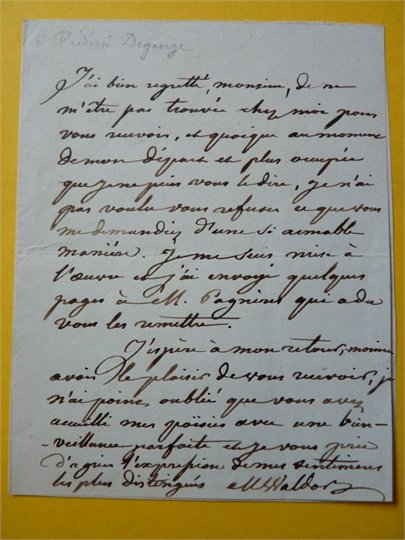 à Frédéric Degeorge
J'ai bien regretté, monsieur, de ne
m'être pas trouvée chez moi pour
vous recevoir, et quoique au moment
de mon départ et plus occupée
que je ne puis vous le dire, je n'ai
pas voulu vous refuser ce que vous
me demandiez d'une si aimable
manière. Je me suis mise à
l'œuvre et j'ai envoyé quelques
pages à M. Pagnerre qui a du
vous les remettre.
J'espère à mon retour, monsieur
avoir le plaisir de vous recevoir, je
n'ai point oublié que vous avez
accueilli mes poësies avec une bien-
-veillance parfaite et je vous prie
d'agréer l'expression de mes sentimens
les plus distingués MWaldor